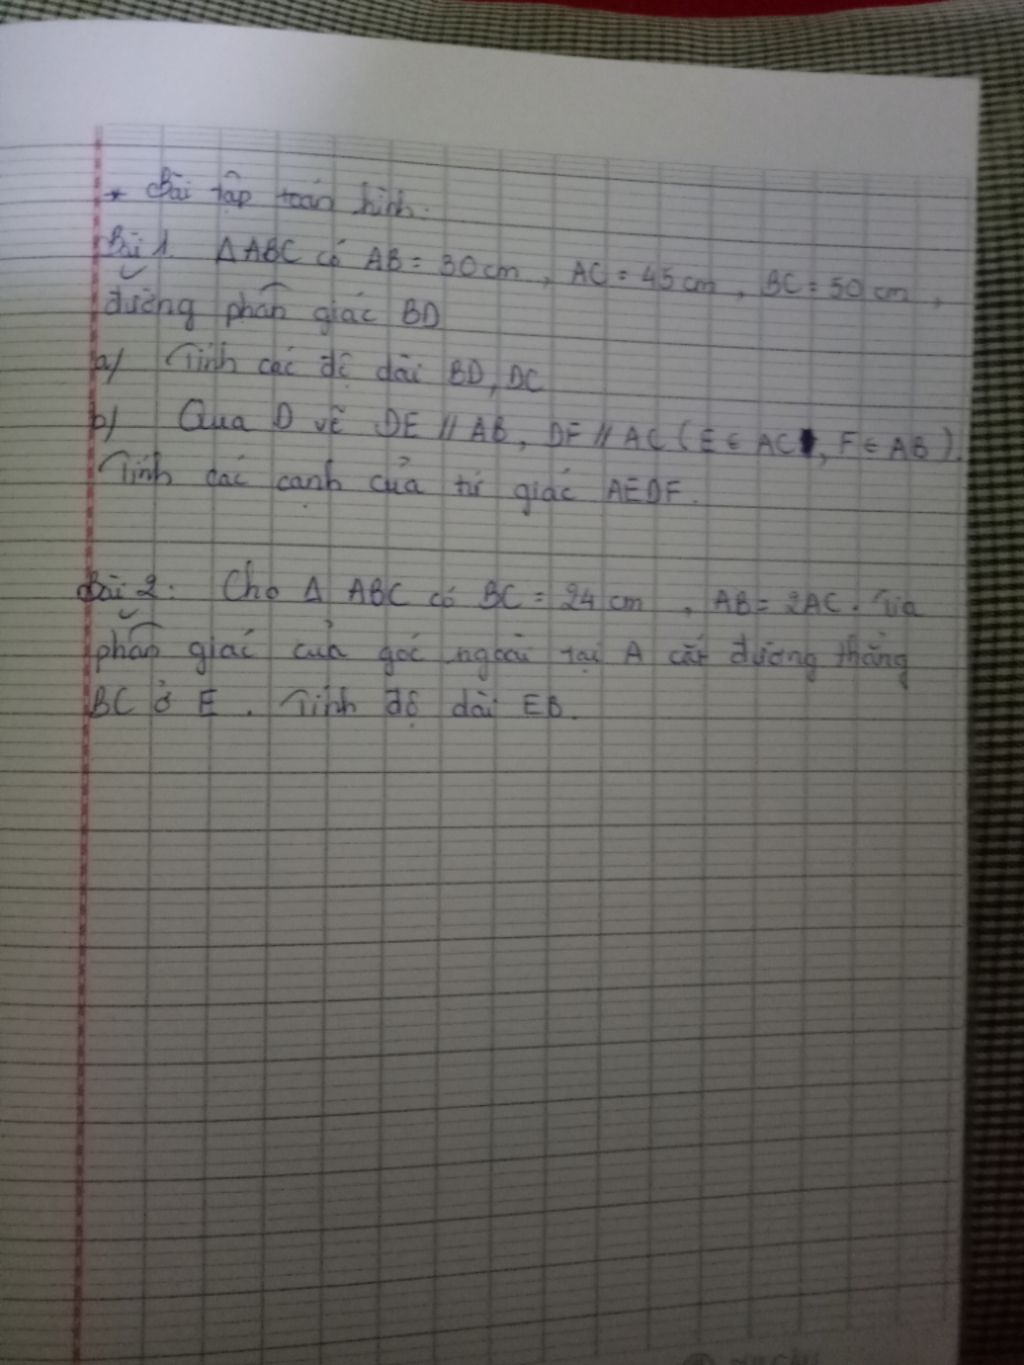 * Bài tập toán hình.
Bài 1. Δ ABC có AB = 30 cm, AC = 45 cm, BC = 50 cm,
đường phân giác BD
a/ Tính các độ dài BD, DC
b/ Qua D vẽ DE // AB, DF // AC (E ∈ AC, F ∈ AB).
Tính các cạnh của tứ giác AEDF.
Bài 2: Cho Δ ABC có BC = 24 cm, AB = 2AC. Tia
phân giác của góc ngoài tại A cắt đường thẳng
BC ở E. Tính độ dài EB.